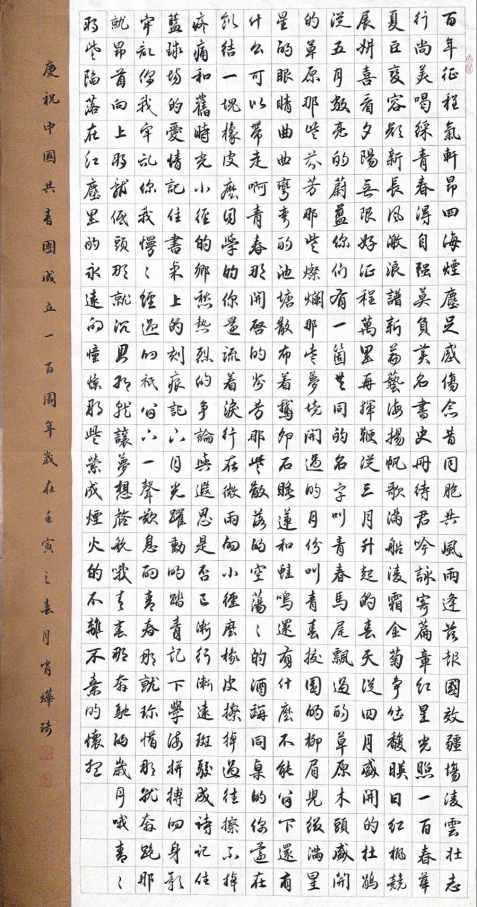 百年征程氣軒昂四海煙塵足感傷念昔同胞共風雨逢茲報國效疆場凌雲壯志
行尚美喝綵青春得自强莫負美名書史冊待君吟詠寄篇章紅星光照一百春華
夏巨變容顏新長風激浪譜新篇藝海揚帆歌滿船凌霜金菊爭位馥映日紅楓競
展妍喜看夕陽無限好征程萬里再揮鞭從三月升起的春天從四月盛開的杜鵑
從五月放亮的蔚藍你們有一箇共同的名字叫青春馬尾飄過的草原木頭盛開
的草原那些芬芳那些燦爛那些夢境開過的月份叫青春校園的柳眉兒綴滿星
星的眼睛曲曲彎彎的池塘散布着鵝卵石睡蓮和蛙鳴還有什麼不能留下還有
什么可以帶走啊青春那開啓的芬芳那些散落的空蕩々的酒誨同桌的你還在
結一塊橡皮麽同學的你還流着淚行在微雨的小徑麽橡皮擦掉過往擦不掉
疼痛和舊時光小徑的鄉愁熱烈的爭論與遐思是否已漸行漸遠斑駁成诗記住
籃球場的愛情記住書桌上的刻痕記六月光躍動的踏青記下學海拼搏的身影
牢記你我牢記你我慢々經過的祇留下一聲歎息的青春那就珍惜那就奔跑那
就昂首向上那就低頭那就沉思那就讓夢想啓航哦青春那奔馳的歲月哦青々
那些陷落在紅塵里的永遠的憧憬那些縈成煙火的不離不棄的懷想
慶祝中國共青團成立一百周年歲在壬寅之春月肖燁琦